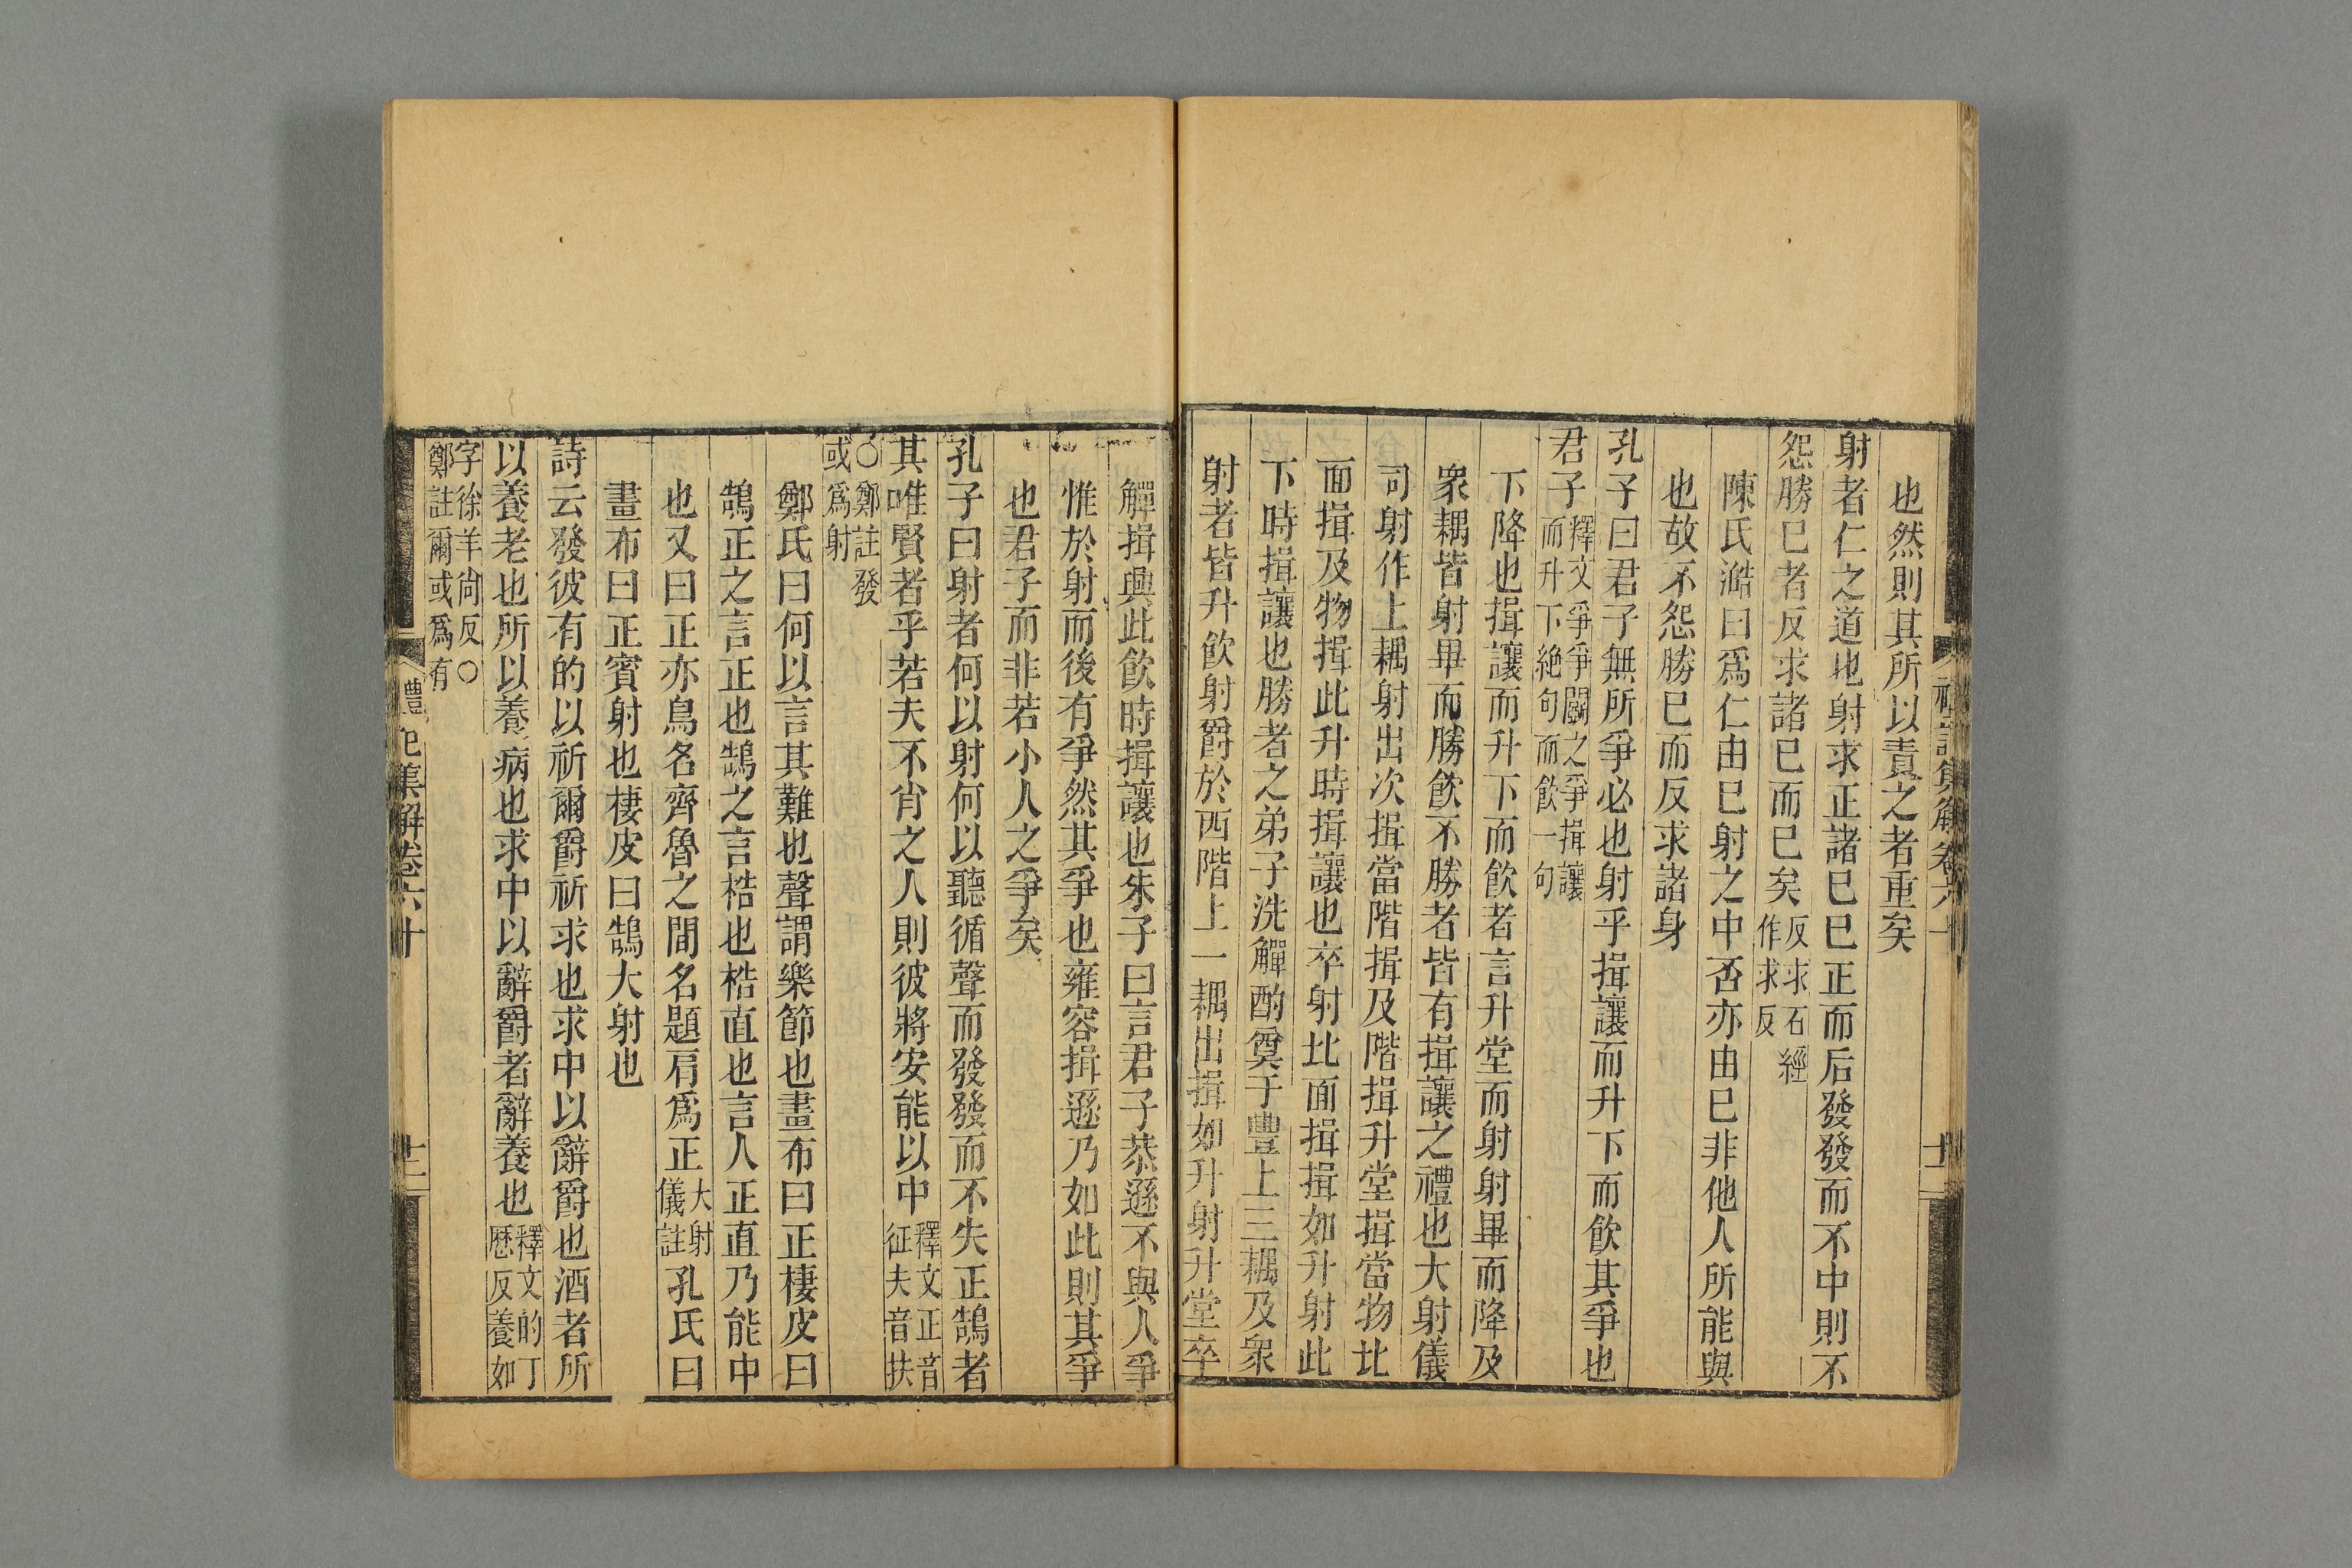 也然則其所以責之者重矣
射者仁之道也射求正諸己己正而后發發而不中則不
怨勝己者反求諸己而已矣反求石經作求反
陳氏澔曰爲仁由己射之中否亦由己非他人所能與
也故不怨勝己而反求諸身
孔子曰君子無所爭必也射乎揖讓而升下而飮其爭也
君子釋文爭爭鬭之爭揖讓而升下絶句而飮一句
下降也揖讓而升下而飮者言升堂而射射畢而降及
衆耦皆射畢而勝飮不勝者皆有揖讓之禮也大射儀
司射作上耦射出次揖當階揖及階揖升堂揖當物北
面揖及物揖此升時揖讓也卒射北面揖揖如升射此
下時揖讓也勝者之弟子洗觶酌奠于豐上三耦及衆
射者皆升飮射爵於西階上一耦出揖如升射升堂卒
觶揖與此飮時揖讓也朱子曰言君子恭遜不與人爭
惟於射而後有爭然其爭也雍容揖遜乃如此則其爭
也君子而非若小人之爭矣
孔子曰射者何以射何以聽循聲而發發而不失正鵠者
其唯賢者乎若夫不肖之人則彼將安能以中釋文正音征夫音扶
○鄭註發或爲射
鄭氏曰何以言其難也聲謂樂節也畫布曰正棲皮曰
鵠正之言正也鵠之言梏也梏直也言人正直乃能中
也又曰正亦鳥名齊魯之間名題肩爲正大射儀註孔氏曰
畫布曰正賓射也棲皮曰鵠大射也
詩云發彼有的以祈爾爵祈求也求中以辭爵也酒者所
以養老也所以養病也求中以辭爵者辭養也釋文的丁歷反養如
字徐羊尙反○鄭註爾或爲有
禮記集解卷六十
十二